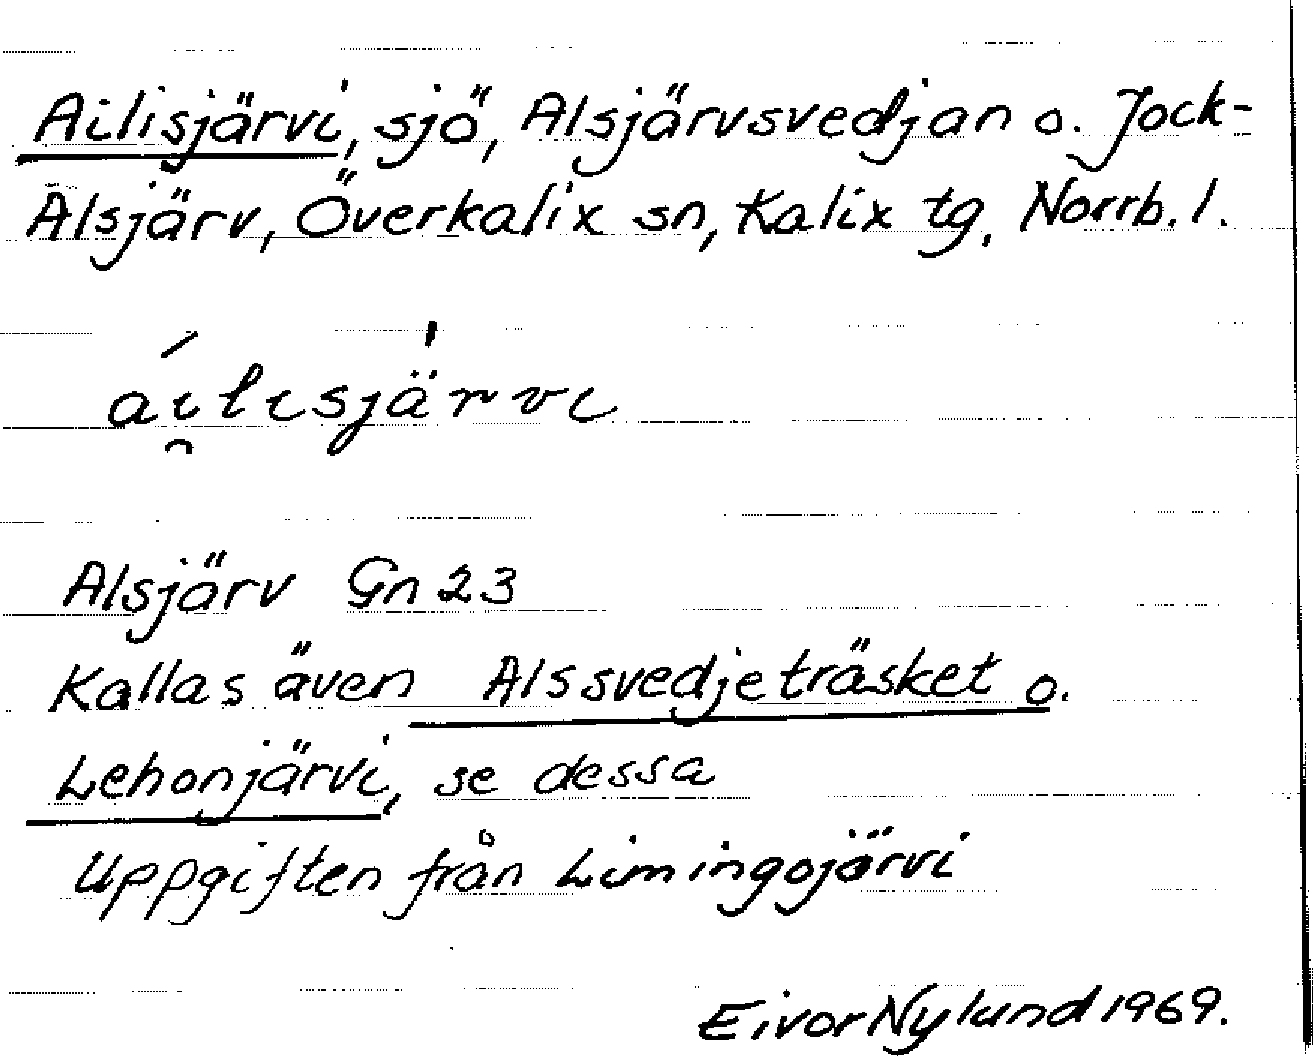 Ailisjärvi, sjö, Alsjärvsvedjan o. Jock-
Alsjärv, Överkalix sn, Kalix tg, Norrb. l.
ái̯lısjä̍rvı
Alsjärv Gn 23
Kallas även Alssvedjeträsket o.
Lehonjärvi, se dessa
Uppgiften från Limingojärvi
Eivor Nylund 1969.